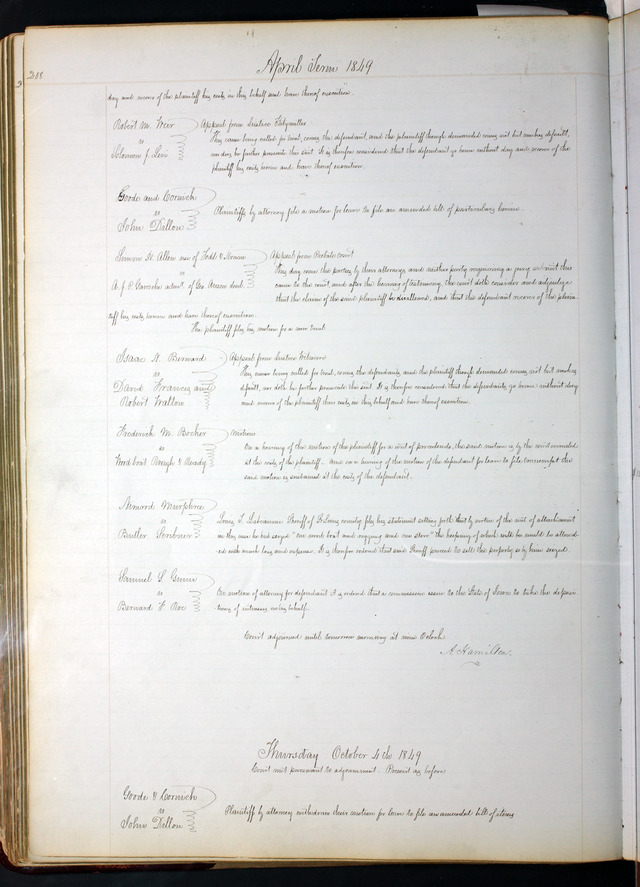 208
April Term 1849
day and recover of the plaintiff his costs in this behalf and have thereof execution.
Robert M. Weir
vs
Solomon J. Levi
Appeal from Justice
This cause being called for trial, comes the defendant, and the plaintiff though demanded comes not but makes default,
nor doth he further prosecute his suit. It is therefore considered that the defendant go hence without day and recover of the
plaintiff his costs herein and have thereof execution.
Goode and Cornwich
vs
John Dillon
Plaintiffs by attorney file a motion for leave to file an amended bill of particulars herein.
A. J. P. Garesche admr. of Geo. decd.
Appeal from Probate Court
This day come the parties by their attorneys and neither party requiring a jury submit this
cause to the court, and after the hearing of testimony, the court doth consider and adjudge
that the claim of the said plaintiff be disallowed, and that the defendant recover of the plain-
tiff his costs herein and have thereof execution.
The plaintiff files his motion for a new trial.
Isaac N. Bernard
vs
David Frances and
Robert Wallow
Appeal from Justice
This cause being called for trial, comes the defendants, and the plaintiff though demanded comes not but makes
default, nor doth he further prosecute his suit. It is therefore considered that the defendants go hence without day
and recover of the plaintiff their costs in this behalf and have thereof execution.
Frederick M. Bocher
vs
Wood boat Rough & Ready
Motions
On a hearing of the motion of the plaintiff for a writ of procedendo, the said motion is by the court overruled
at the costs of the plaintiff. And on a hearing of the motion of the defendant for leave to file transcript the
said motion is sustained at the costs of the defendant.
Nimrod Murphree
vs
Butler Scribner
Louis T. Labeaume Sheriff of St Louis county files his statement setting forth that by virtue of the writ of attachment
in this case he has seized "one wood boat and rigging and one stove" the keeping of which will be could be attend-
ed with much loss and expense. It is therefore ordered that said Sheriff proceed to sell the property so by him seized.
Samuel L. Green
vs
Bernard F. Roe
On motion of attorney for defendant it is ordered that a commission issue to the State of Iowa to take the deposi-
tions of witnesses on his behalf.
Court adjourned until tomorrow morning at nine Oclock
A. Hamilton.
Thursday October 4th 1849
Court met pursuant to adjournment. Present as before
Goode & Cornwich
vs
John Dillon
Plaintiffs by attorney withdraw their motion for leave to file an amended bill of items